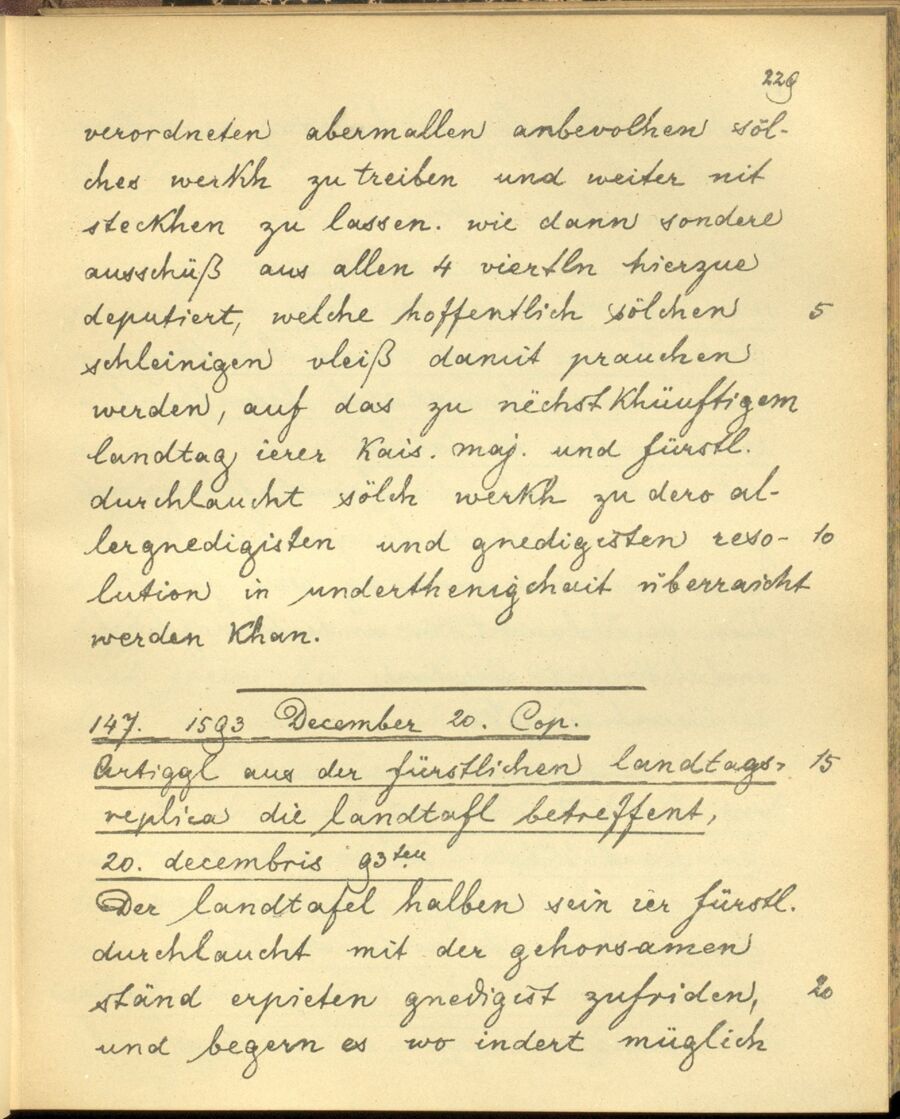 229
verordneten abermallen anbevolhen söl-
ches werkh zu treiben und weiter nit
steckhen zu lassen. wie dann sondere
ausschüß aus allen 4 viertln hierzue
deputiert, welche hoffentlich sölchen 5
schleinigen vleiß damit prauchen
werden, auf das zu nëchst khüuftigem
landtag ierer Kais. maj. und fürstl.
durchlaucht sölch werkh zu dero al-
lergnedigisten und gnedigisten reso- 10
lution in underthenigchait überraicht
werden khan.
147. 1593 December 20. Cop.
Artiggl aus der fürstlichen landtags- 15
replica die landtafl betreffent,
20. decembris 93ten
Der landtafel halben sein ier fürstl.
durchlaucht mit der gehorsamen
ständ erpieten gnedigist zufriden, 20
und begern es wo indert müglich